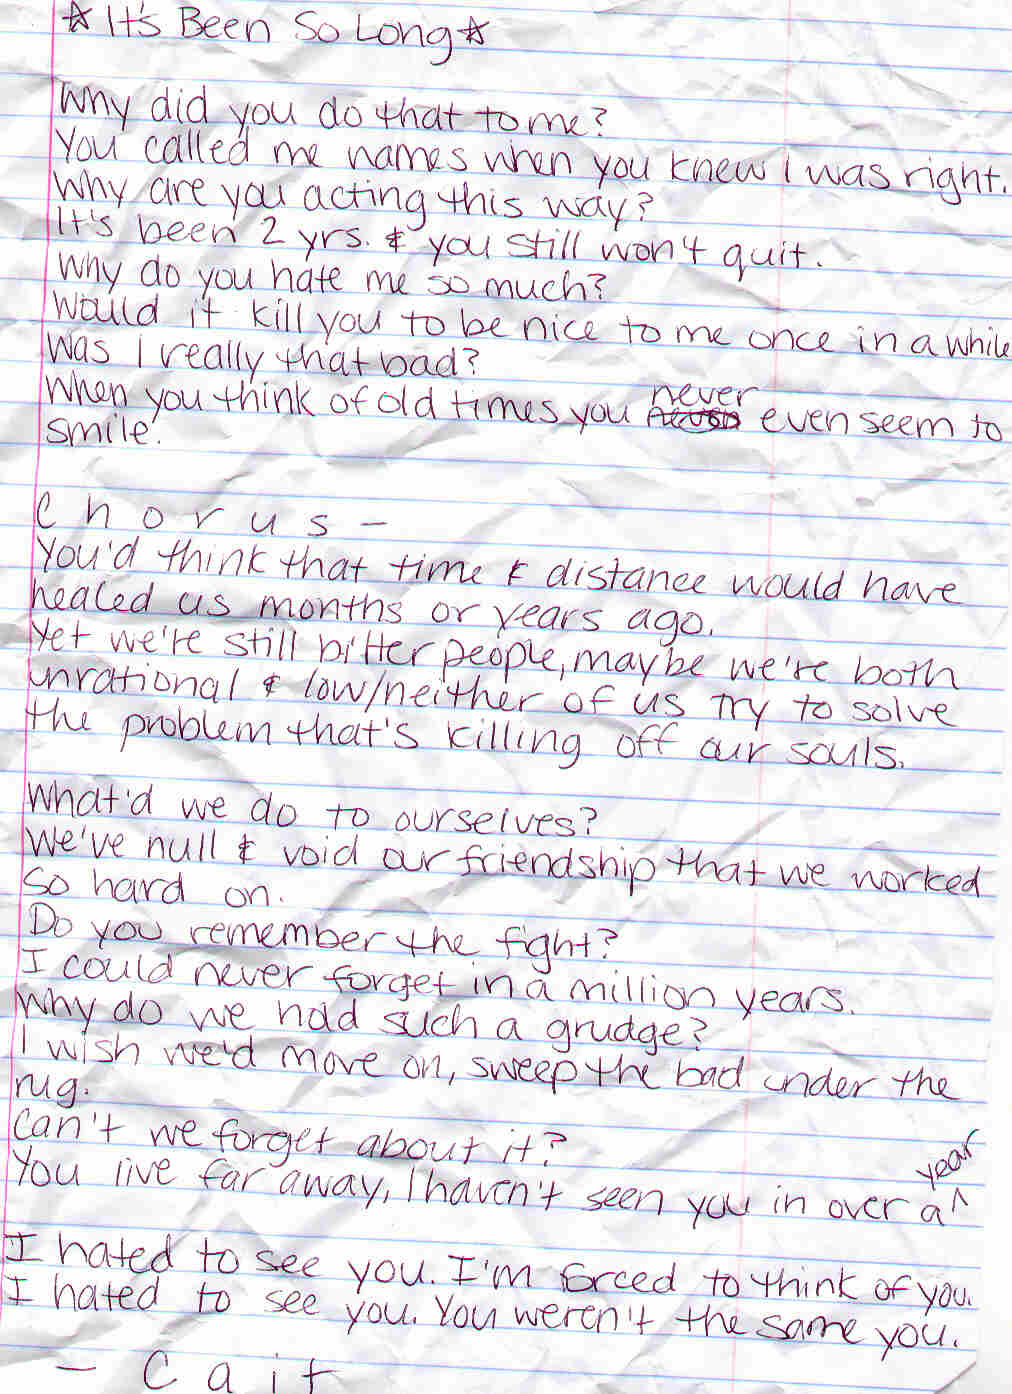 ☆It's Been So Long☆
Why did you do that to me?
You called me names when you knew I was right.
Why are you acting this way?
It's been 2 yrs. & you still won't quit.
Why do you hate me so much?
Would it kill you to be nice to me once in a while
Was I really that bad?
When you think of old times you never even seem to
smile.
Chorus-
You'd think that time & distance would have
healed us months or years ago.
Yet we're still bitter people, maybe we're both
unrational & low/neither of us try to solve
the problem that's killing off our souls.
What'd we do to ourselves?
We've null & void our friendship that we worked
so hard on.
Do you remember the fight?
I could never forget in a million years.
Why do we hold such a grudge?
I wish we'd move on, sweep the bad under the
rug.
Can't we forget about it?
You live far away, I haven't seen you in over a year
I hated to see you. I'm forced to think of you.
I hated to see you. You weren't the same you.
- Cait